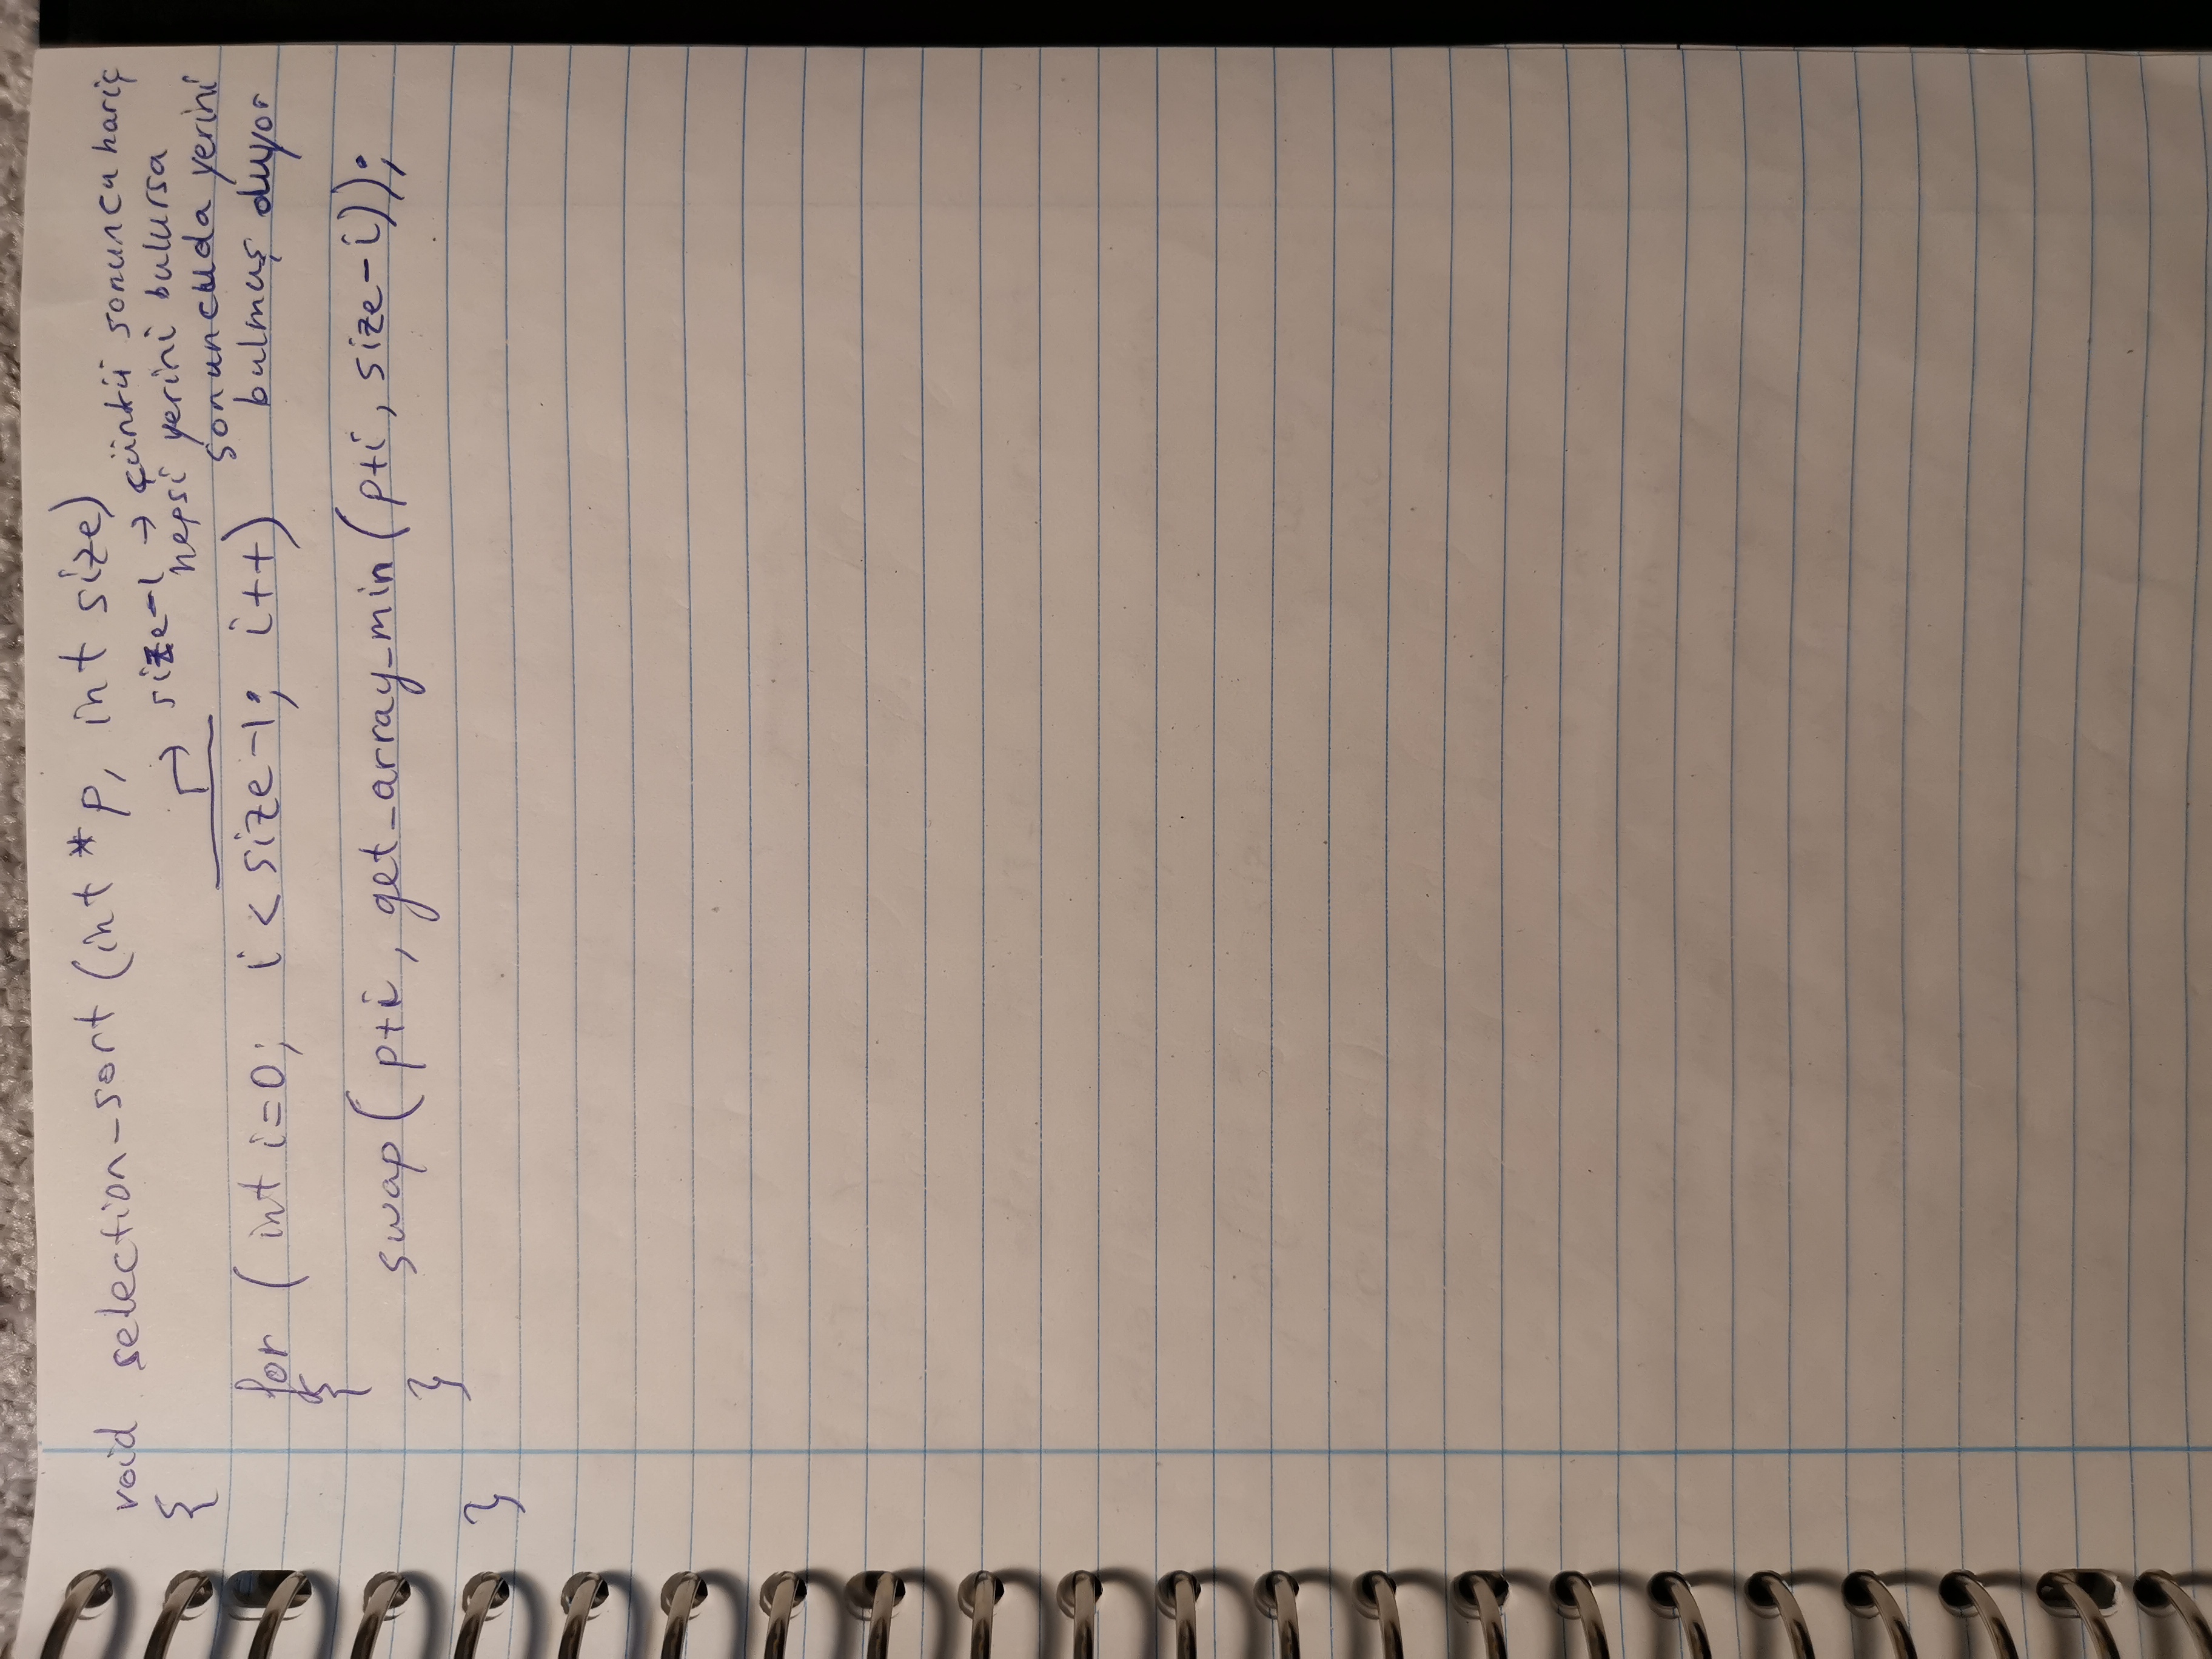 void selection_sort (int *p, int size)
{
size-1 → çünkü sonuncu hariç
hepsi yerini bulursa
sonuncuda yerini
bulmuş oluyor
for ( int i=0; i < size-1; i++)
{
swap ( p+i, get_array_min (p+i, size-i));
}
}